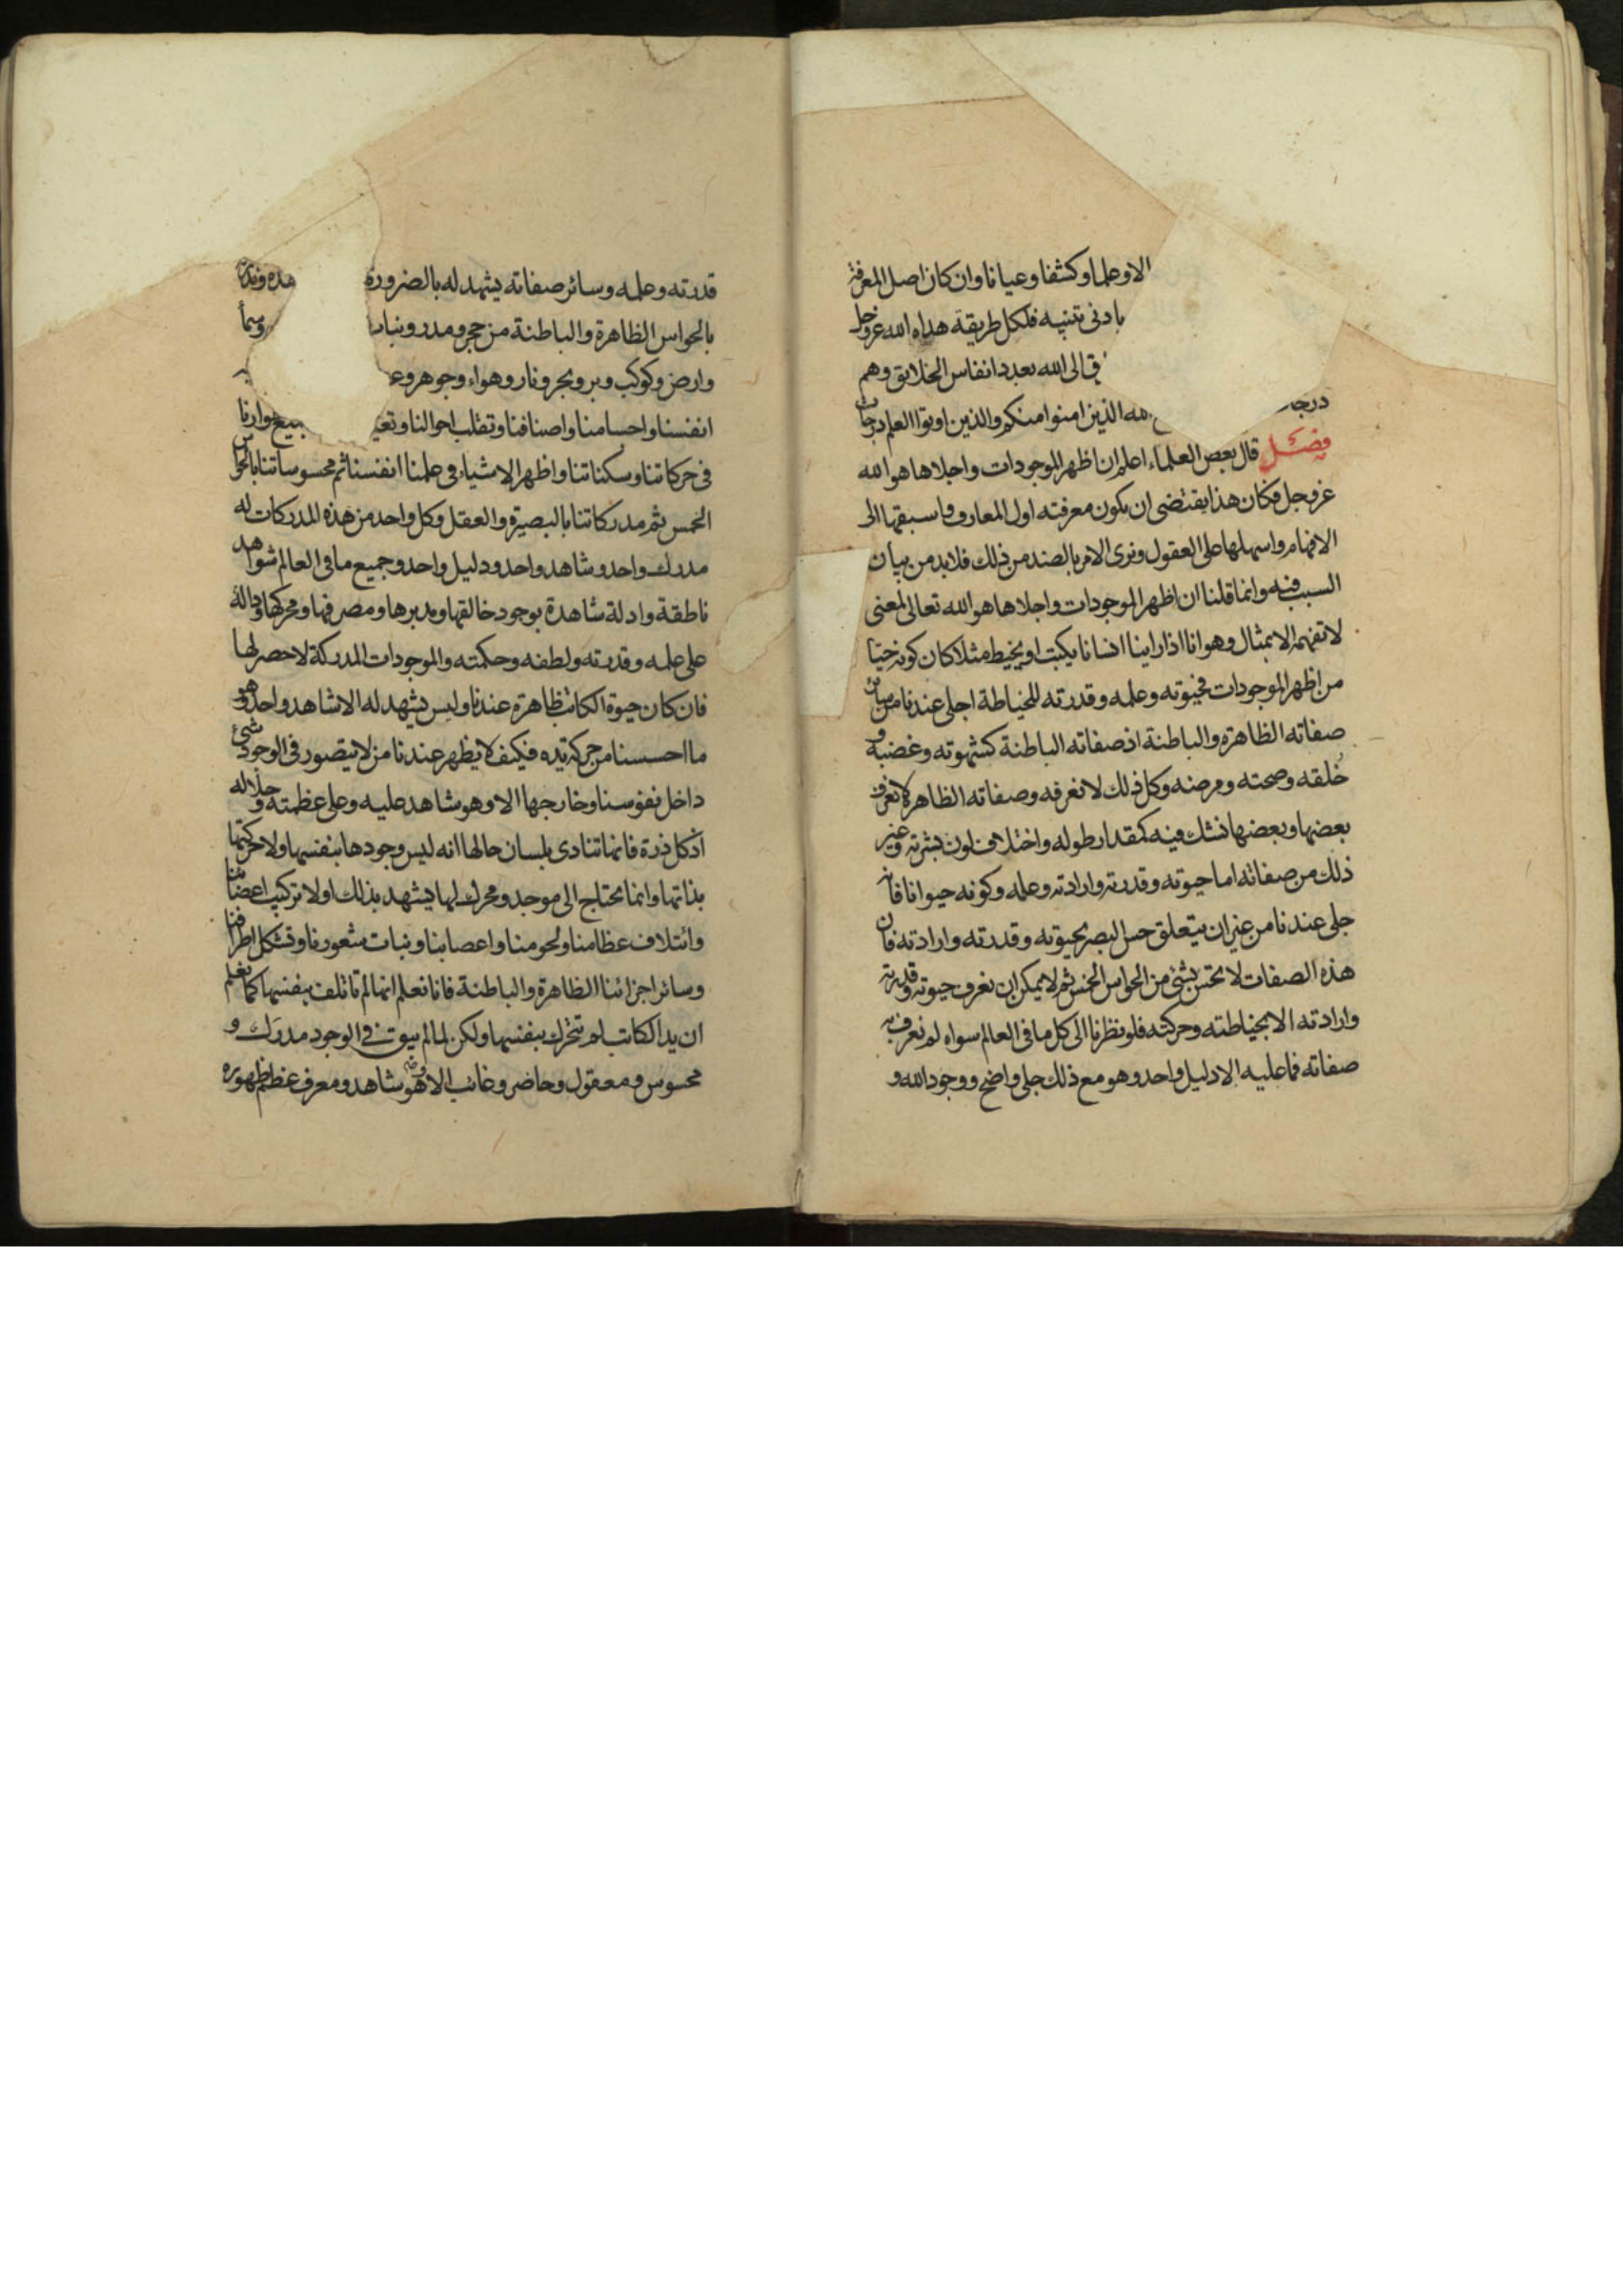 الاوعلما وكشفا وعيانا وان كان اصل المعرفة
بادنى تنبيه فلكل طريقة هداه الله عزوجل
ق الى الله بعدد انفاس الخلايق وهم
درجا له الذين امنوا منكم والذين اوتوا العلم درجات
فصل قال بعض العلماء اعلم ان اظهر الموجودات واجلاها هو الله
عزوجل فكان هذا يقتضى ان يكون معرفته اول المعارف واسبقها الى
الافهام واسهلها على العقول ونرى الامر بالضد من ذلك فلابد من بيان
السبب فيه وانما قلنا ان اظهر الموجودات واجلاها هو الله تعالى لمعنى
لا تفهمه الا بمثال وهو انا اذا راينا انسانا يكتب او يخيط مثلا كان كونه حيّا
من اظهر الموجودات فحيوته وعلمه وقدرته للخياطة اجلى عندنا من سائر
صفاته الظاهرة والباطنة اذ صفاته الباطنة كشهوته وغضبه و
خُلقه وصحته ومرضه وكل ذلك لا نعرفه وصفاته الظاهرة لا نعرف
بعضها وبعضها نشك فيه كمقدار طوله واختلاف لون بشرته وغير
ذلك من صفاته اما حيوته وقدرته وارادته وعلمه وكونه حيوانا فانه
جلى عندنا من غير ان يتعلق حس البصر بحيوته وقدرته وارادته فان
هذه الصفات لا تحس بشئ من الحواس الخمس ثم لا يمكن ان نعرف حيوته وقدرته
وارادته الا بخياطته وحركته فلو نظرنا الى كل ما فى العالم سواه لم نعرف به
صفاته فما عليه الا دليل واحد وهو مع ذلك جلى واضح ووجود الله و
قدرته وعلمه وسائر صفاته يشهد له بالضرورة هده وندركه
بالحواس الظاهرة والباطنة من حجر ومدر ونبات وسمأ
وارض وكوكب وبر وبحر ونار وهواء وجوهر وع
انفسنا واجسامنا واصنافنا وتقلب احوالنا وتغير جميع اطوارنا
فى حركاتنا وسكناتنا واظهر الاشياء فى علمنا انفسنا ثم محسوساتنا بالحواس
الخمس ثم مدركاتنا بالبصيرة والعقل وكل واحد من هذه المدركات له
مدرك واحد وشاهد واحد ودليل واحد وجميع ما فى العالم شواهد
ناطقة وادلة شاهدة بوجود خالقها ومدبرها ومصرفها ومحركها ودالة
على علمه وقدرته ولطفه وحكمته والموجودات المدركة لا حصر لها
فان كان حيوة الكاتب ظاهرة عندنا وليس يشهد له الا شاهد واحد وهو
ما احسسنا من حركة يده فكيف لا يظهر عندنا من لا يتصور فى الوجود شئ
داخل نفوسنا وخارجها الا وهو شاهد عليه وعلى عظمته وجلاله
اذ كل ذرة فانها تنادى بلسان حالها انه ليس وجودها بنفسها ولا حركتها
بذاتها وانما يحتاج الى موجد ومحرك لها يشهد بذلك اولا تركيب اعضائنا
وائتلاف عظامنا ولحومنا واعصابنا ونبات شعورنا وتشكل اطرافنا
وسائر اجزائنا الظاهرة والباطنة فانا نعلم انها لم تاتلف بنفسها كما نعلم
ان يد الكاتب لم تتحرك بنفسها ولكن لما لم يبق فى الوجود مدرَك و
محسوس ومعقول وحاضر وغائب الا وهو شاهد ومعرف عظم ظهوره